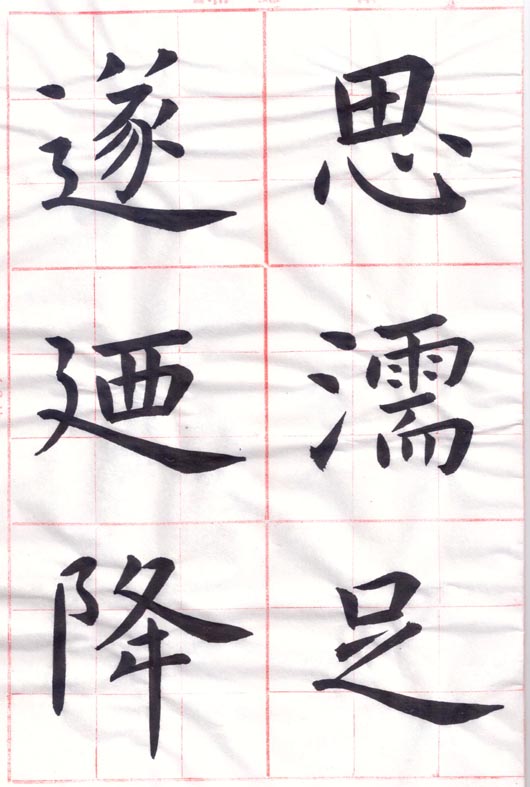 思濡足
遂廼降